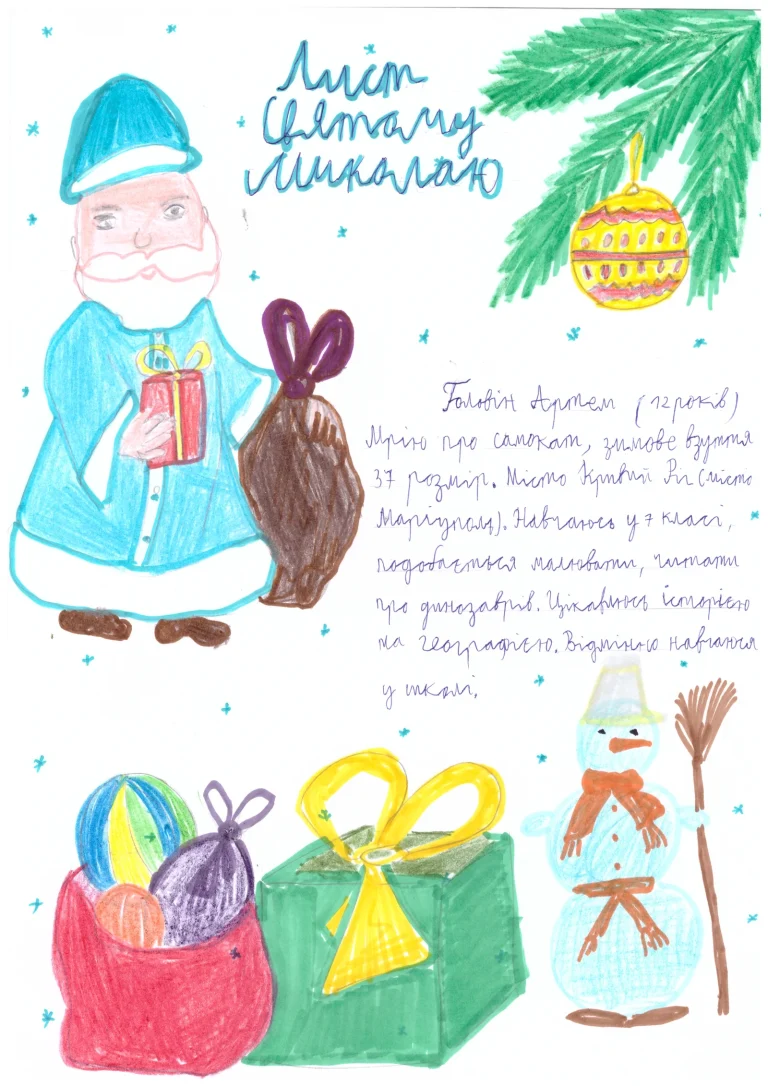 Лист
Святому
Миколаю
Головін Артем (12 років)
Мрію про самокат, зимове взуття
37 розмір. Місто Кривий Ріг (місто
Маріуполь). Навчаюсь у 7 класі,
подобається малювати, читати
про динозаврів. Цікавлюсь історією
та географією. Відмінно навчаюся
у школі.